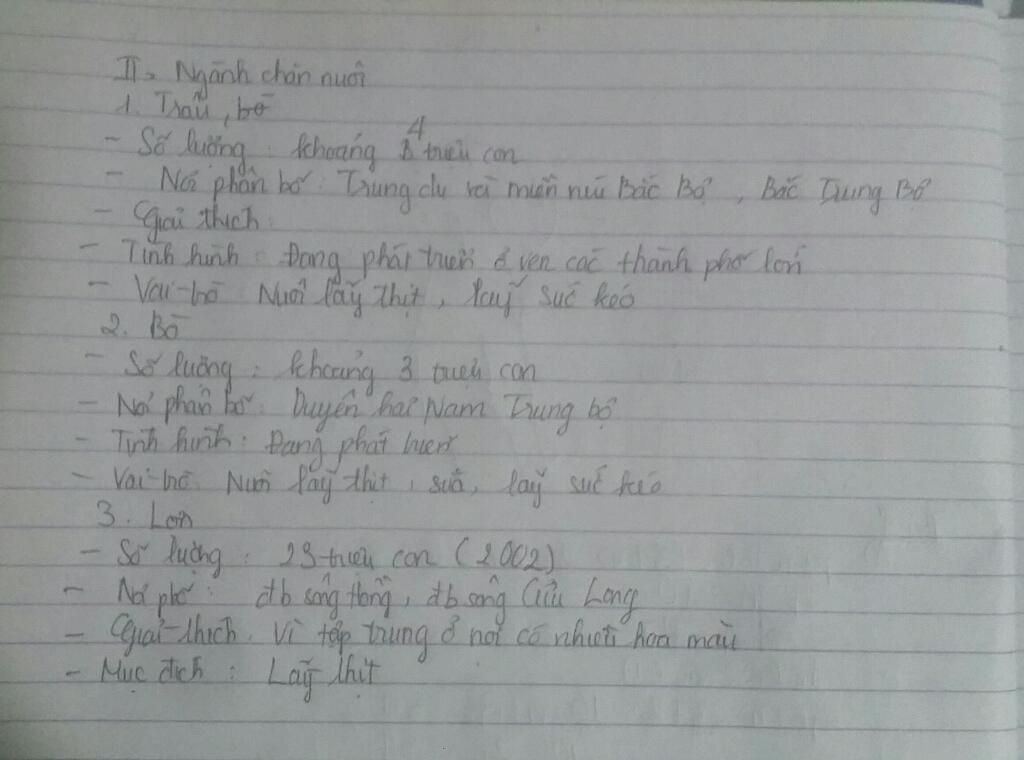 II. Ngành chăn nuôi
1. Trâu, bò
- Số lượng : khoảng 4 triệu con
- Nơi phân bố : Trung du và miền núi Bắc Bộ, Bắc Trung Bộ
- Giải thích :
- Tình hình : Đang phát triển ở ven các thành phố lớn
- Vai trò : Nuôi lấy thịt, lấy sức kéo
2. Bò
- Số lượng : khoảng 3 triệu con
- Nơi phân bố : Duyên hải Nam Trung bộ
- Tình hình : Đang phát triển
- Vai trò : Nuôi lấy thịt, sữa, lấy sức kéo
3. Lợn
- Số lượng : 23 triệu con (2002)
- Nơi phố : đb sông Hồng, đb sông Cửu Long
- Giải thích : Vì tập trung ở nơi có nhiều hoa màu
- Mục đích : Lấy thịt